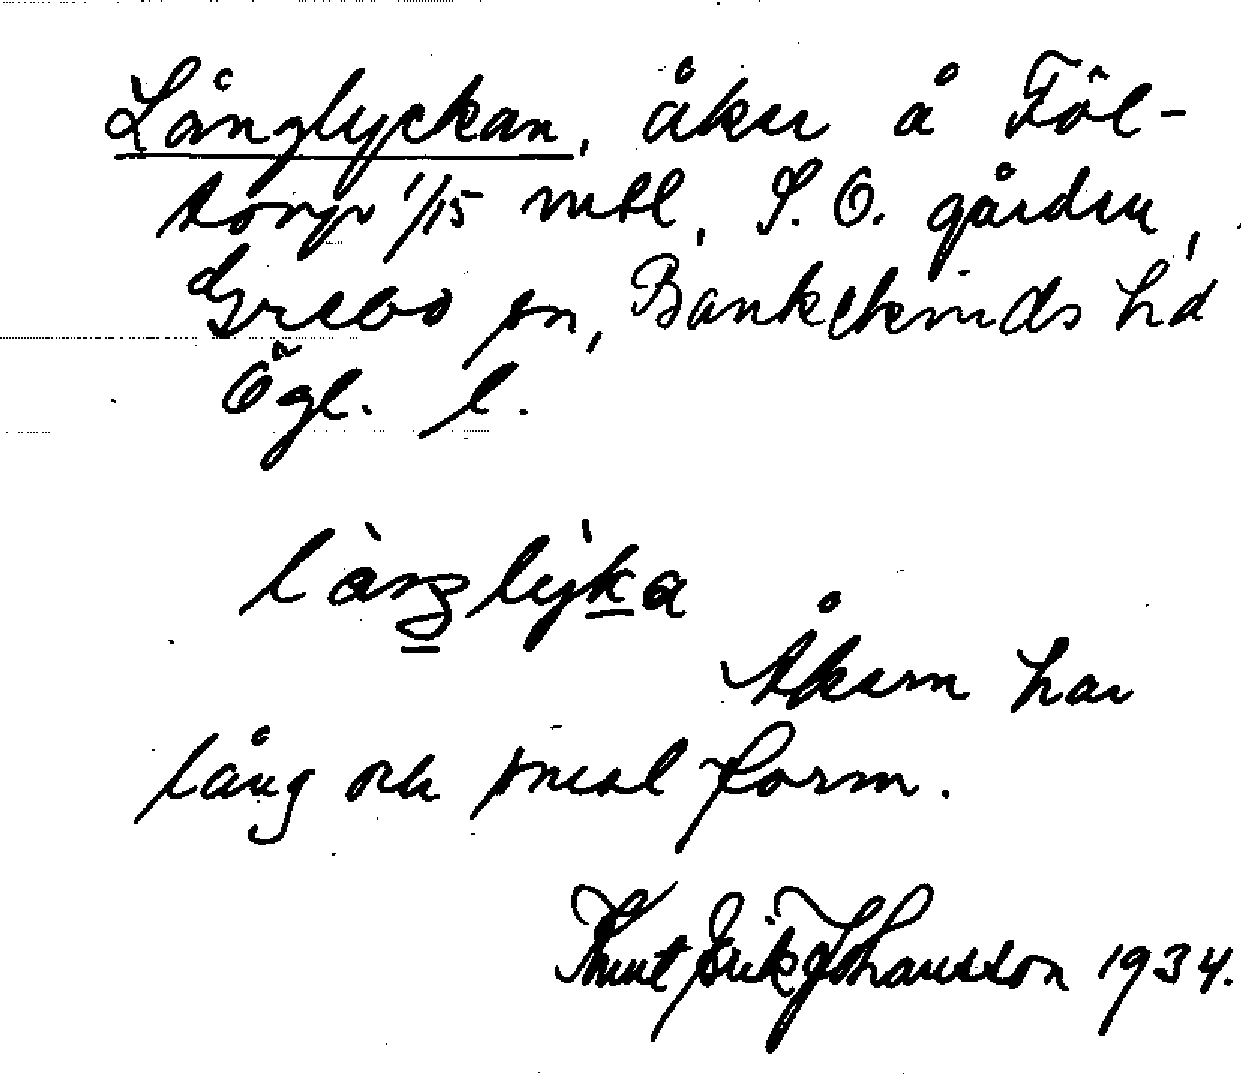 Långlyckan, åker å Föl-
torp 1/15 mtl, S. Ö. gården,
Grebo sn, Bankekinds hd
Ögl. l.
làŋlỳka
Åkern har
lång och smal form.
Knut Erik Johansson 1934.